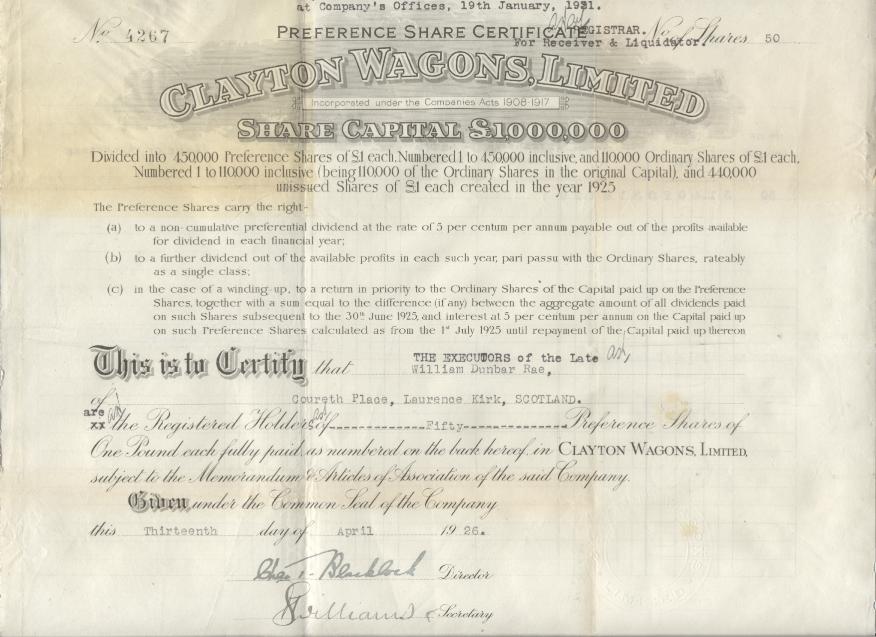 at Company's Offices, 19th January, 1931.
No 4267 PREFERENCE SHARE CERTIFICATE REGISTRAR. No of Shares 50
For Receiver & Liquidator
CLAYTON WAGONS, LIMITED
Incorporated under the Companies Acts 1908-1917
SHARE CAPITAL £1,000,000
Divided into 450,000 Preference Shares of £1 each, Numbered 1 to 450,000 inclusive, and 110,000 Ordinary Shares of £1 each,
Numbered 1 to 110,000 inclusive (being 110,000 of the Ordinary Shares in the original Capital), and 440,000
unissued Shares of £1 each created in the year 1925
The Preference Shares carry the right-
(a) to a non-cumulative preferential dividend at the rate of 5 per centum per annum payable out of the profits available
for dividend in each financial year;
(b) to a further dividend out of the available profits in each such year, pari passu with the Ordinary Shares, rateably
as a single class;
(c) in the case of a winding-up, to a return in priority to the Ordinary Shares of the Capital paid up on the Preference
Shares, together with a sum equal to the difference (if any) between the aggregate amount of all dividends paid
on such Shares subsequent to the 30th June 1925, and interest at 5 per centum per annum on the Capital paid up
on such Preference Shares calculated as from the 1st July 1925 until repayment of the Capital paid up thereon
This is to Certify that THE EXECUTORS of the Late
William Dunbar Rae,
of Coureth Place, Laurence Kirk, SCOTLAND.
are
xx the Registered Holders of -------------Fifty-------------- Preference Shares of
One Pound each fully paid, as numbered on the back hereof, in CLAYTON WAGONS, LIMITED,
subject to the Memorandum & Articles of Association of the said Company.
Given under the Common Seal of the Company
this Thirteenth day of April 1926.
Blacklock Director
Williams Secretary